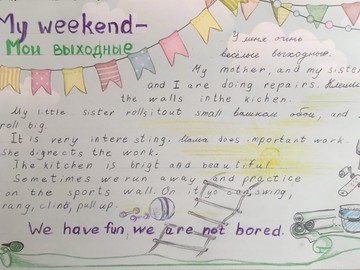 My weekend-
Мои выходные
У меня очень
весёлые выходные.
My mother, and my sister
and I are doing repairs.
the walls in the kichen
My little sister rolls it out small обои, and
roll big.
It is very interesting. Мама does important work
She digrects the work.
The kitchen is brigt and beautiful
Sometimes we run away and practice
on the sports wall. On it yo can swing,
rang, climb, pull up.
We have fun, we are not bored.